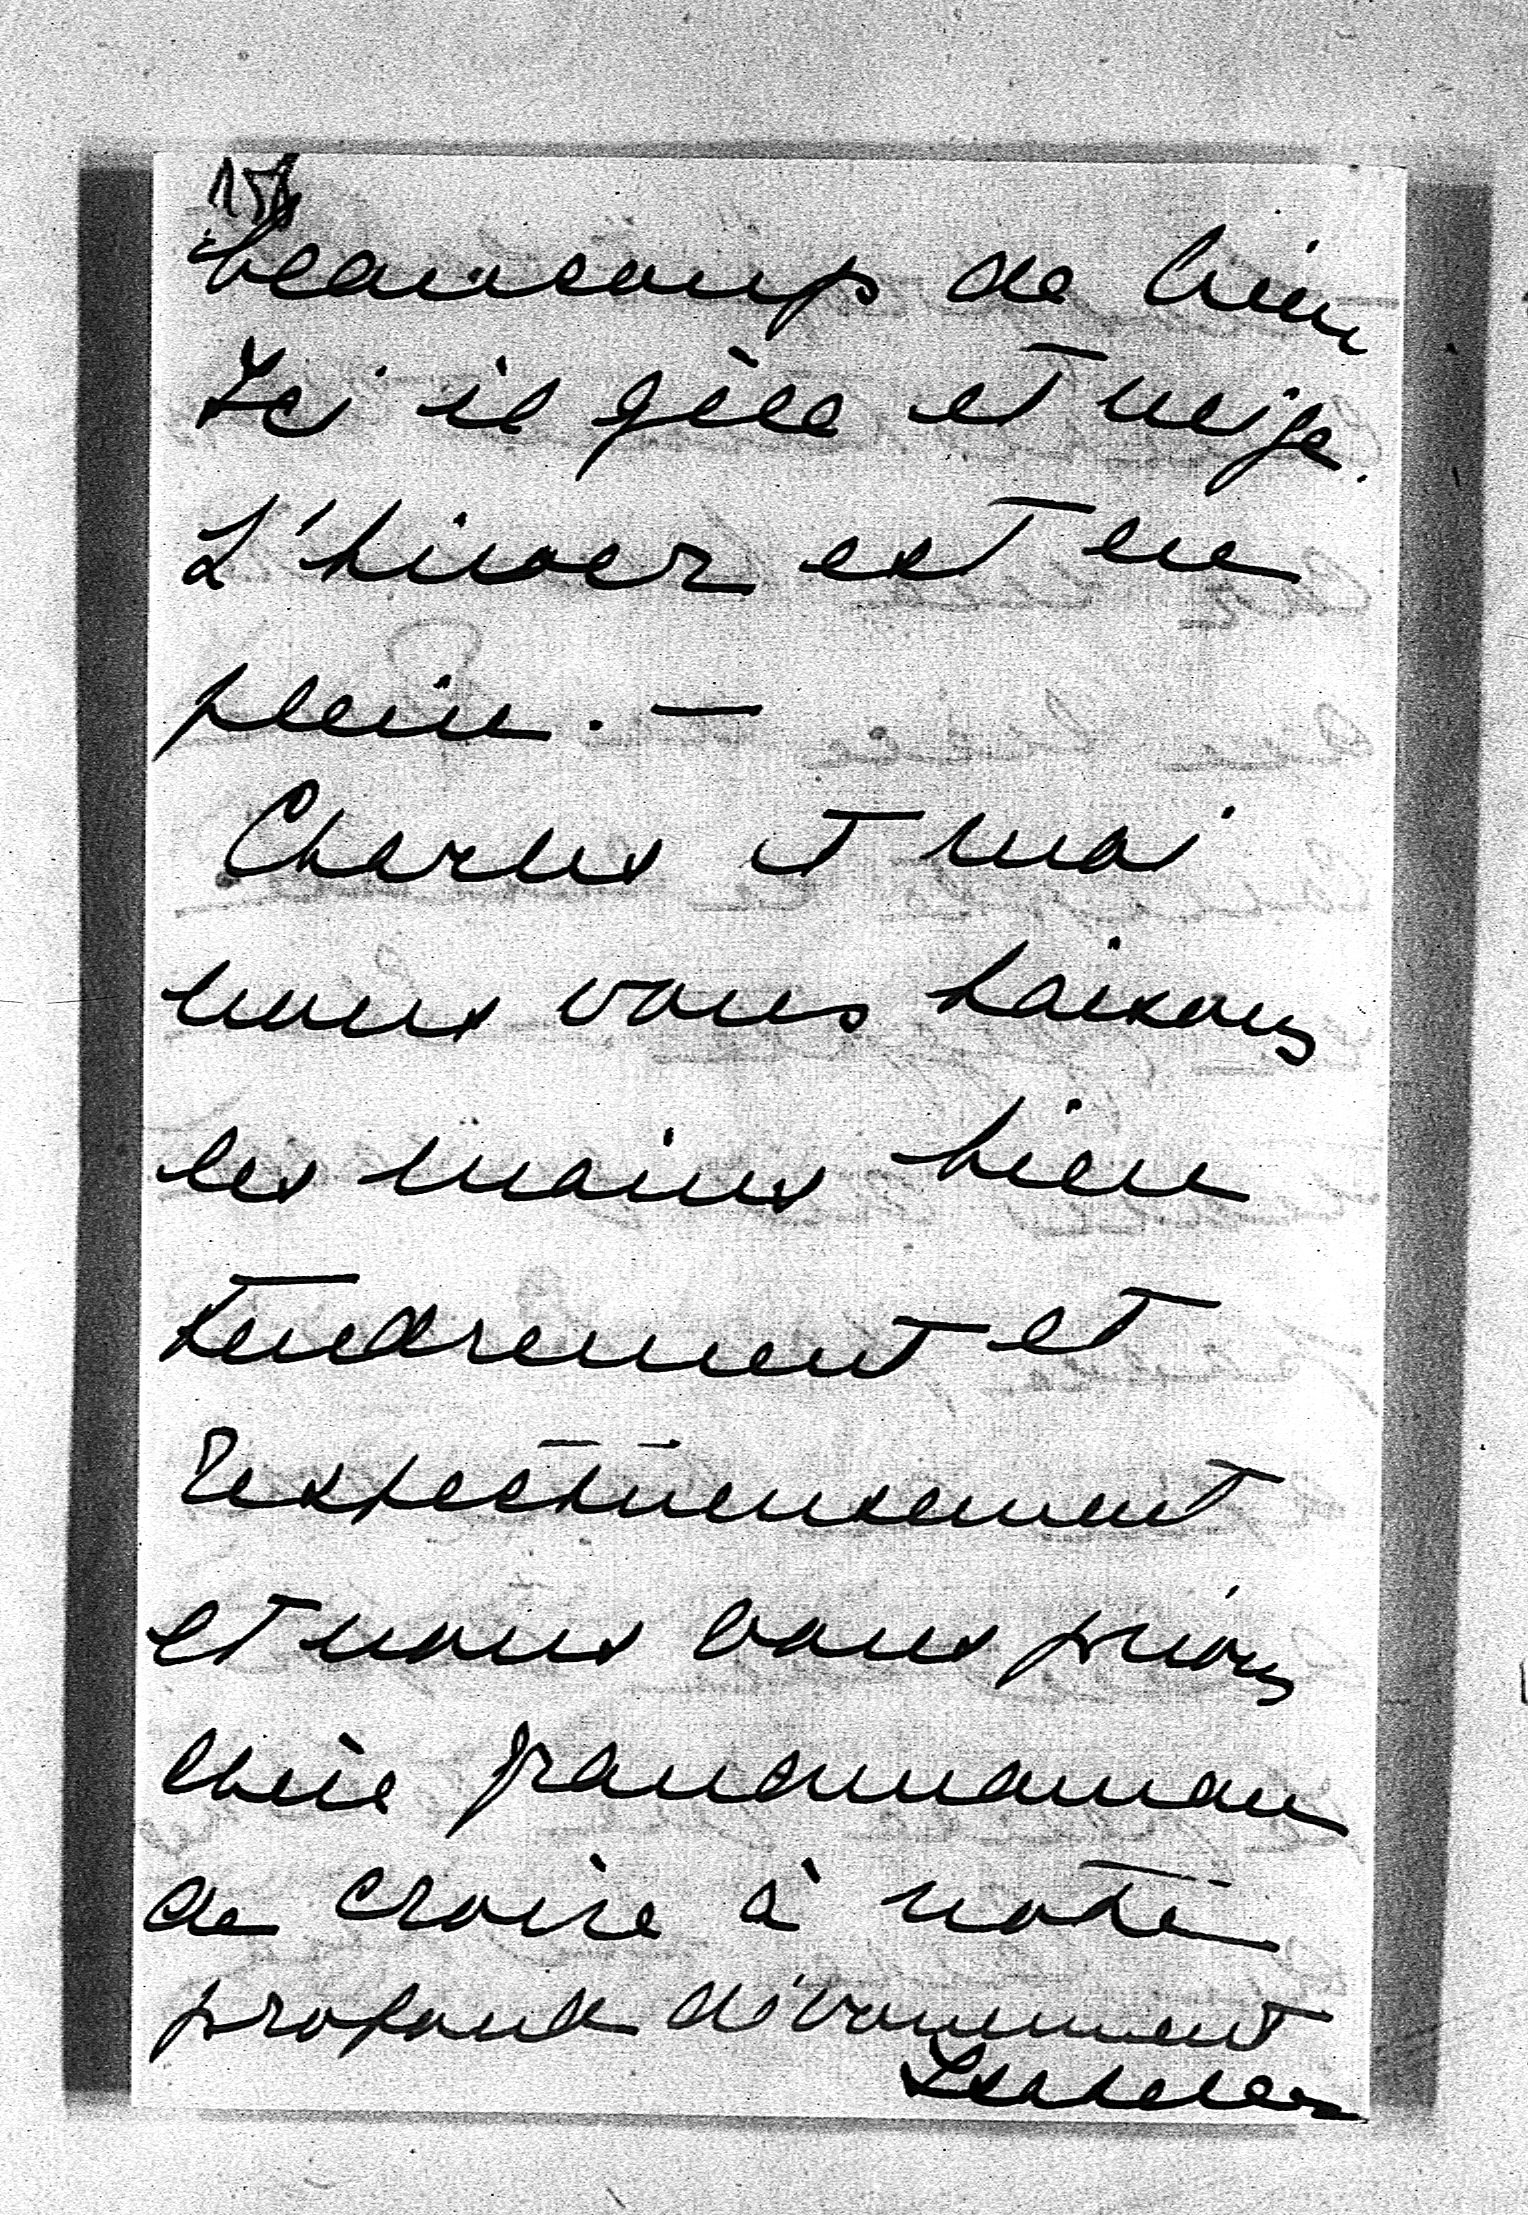 beaucoup de bien
Ici il gèle et neige.
L'hiver est en
plein. —
Charles et moi
nous vous baisons
les mains bien
tendrement et
respectueusement
et nous vous prions
chère grandmaman
de croire à notre
profond dévouement